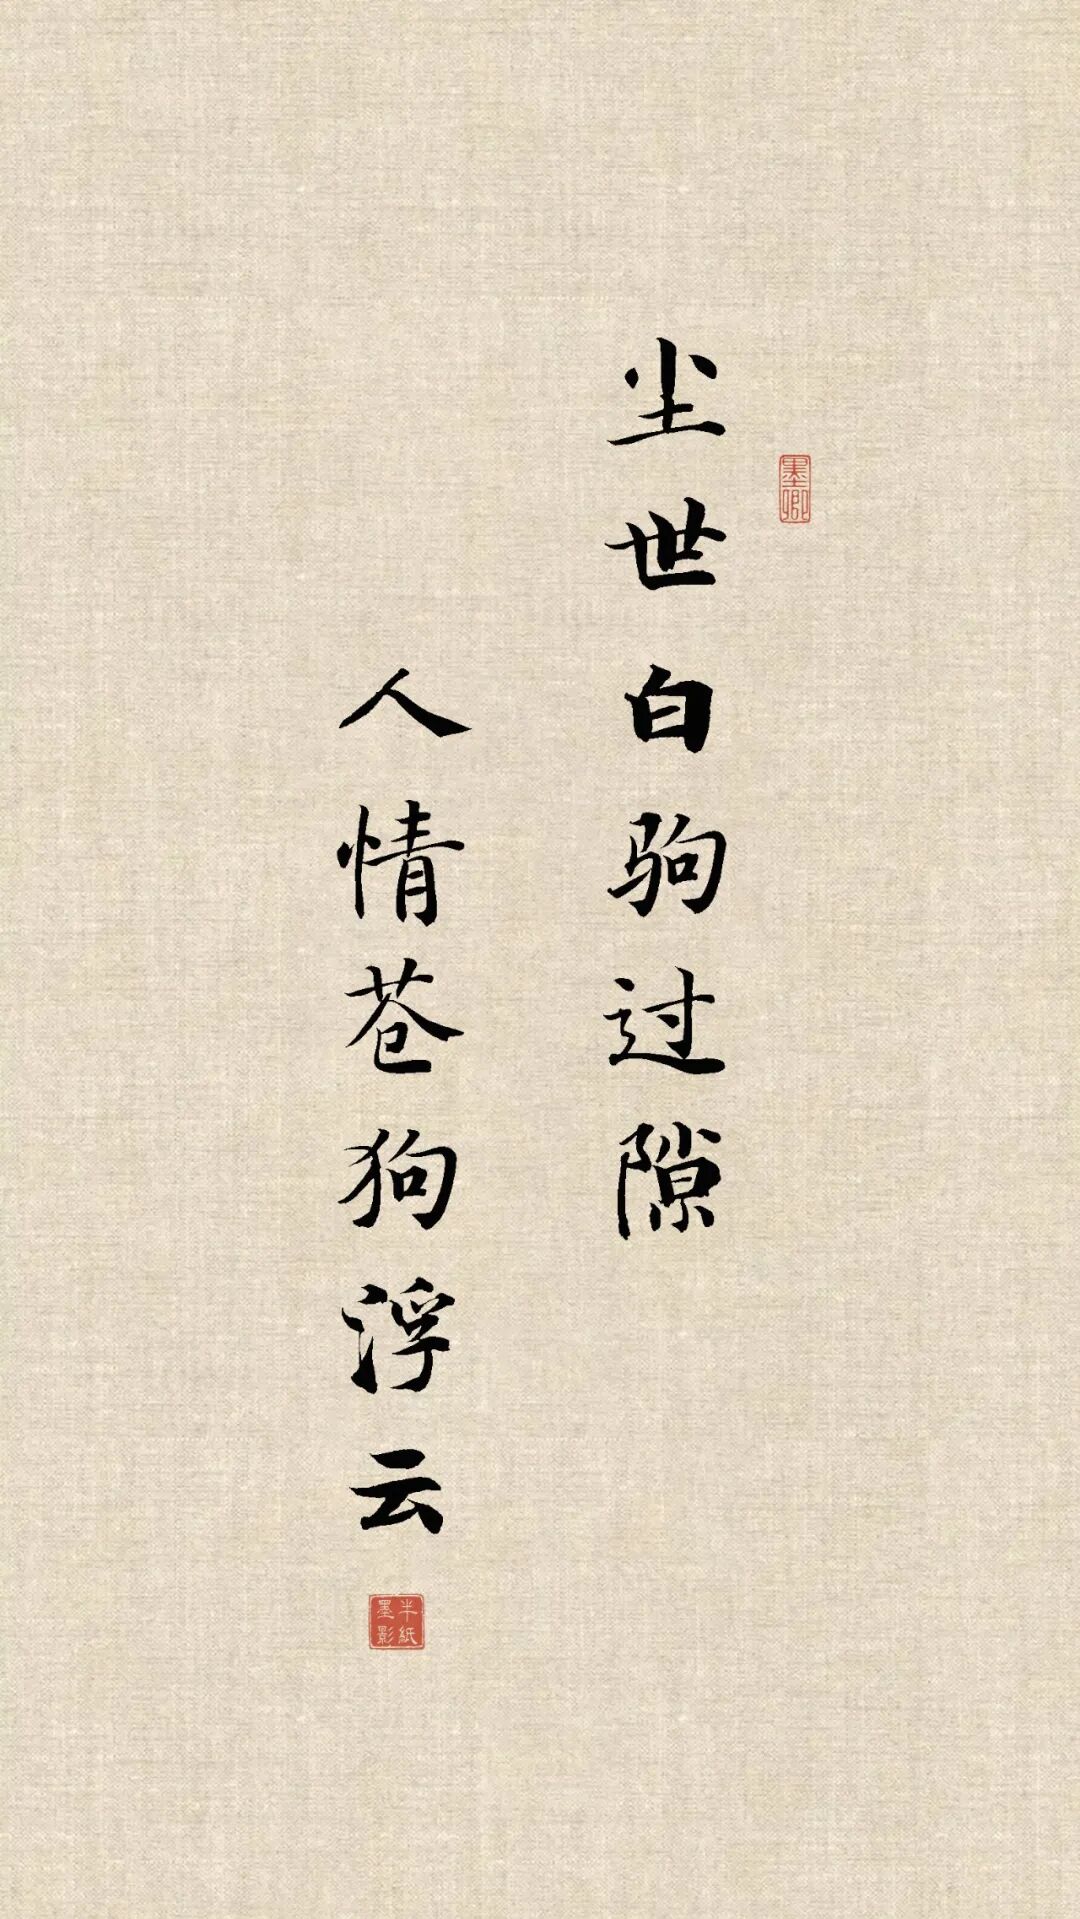 尘世白驹过隙
墨卿
人情苍狗浮云
半紙
墨影